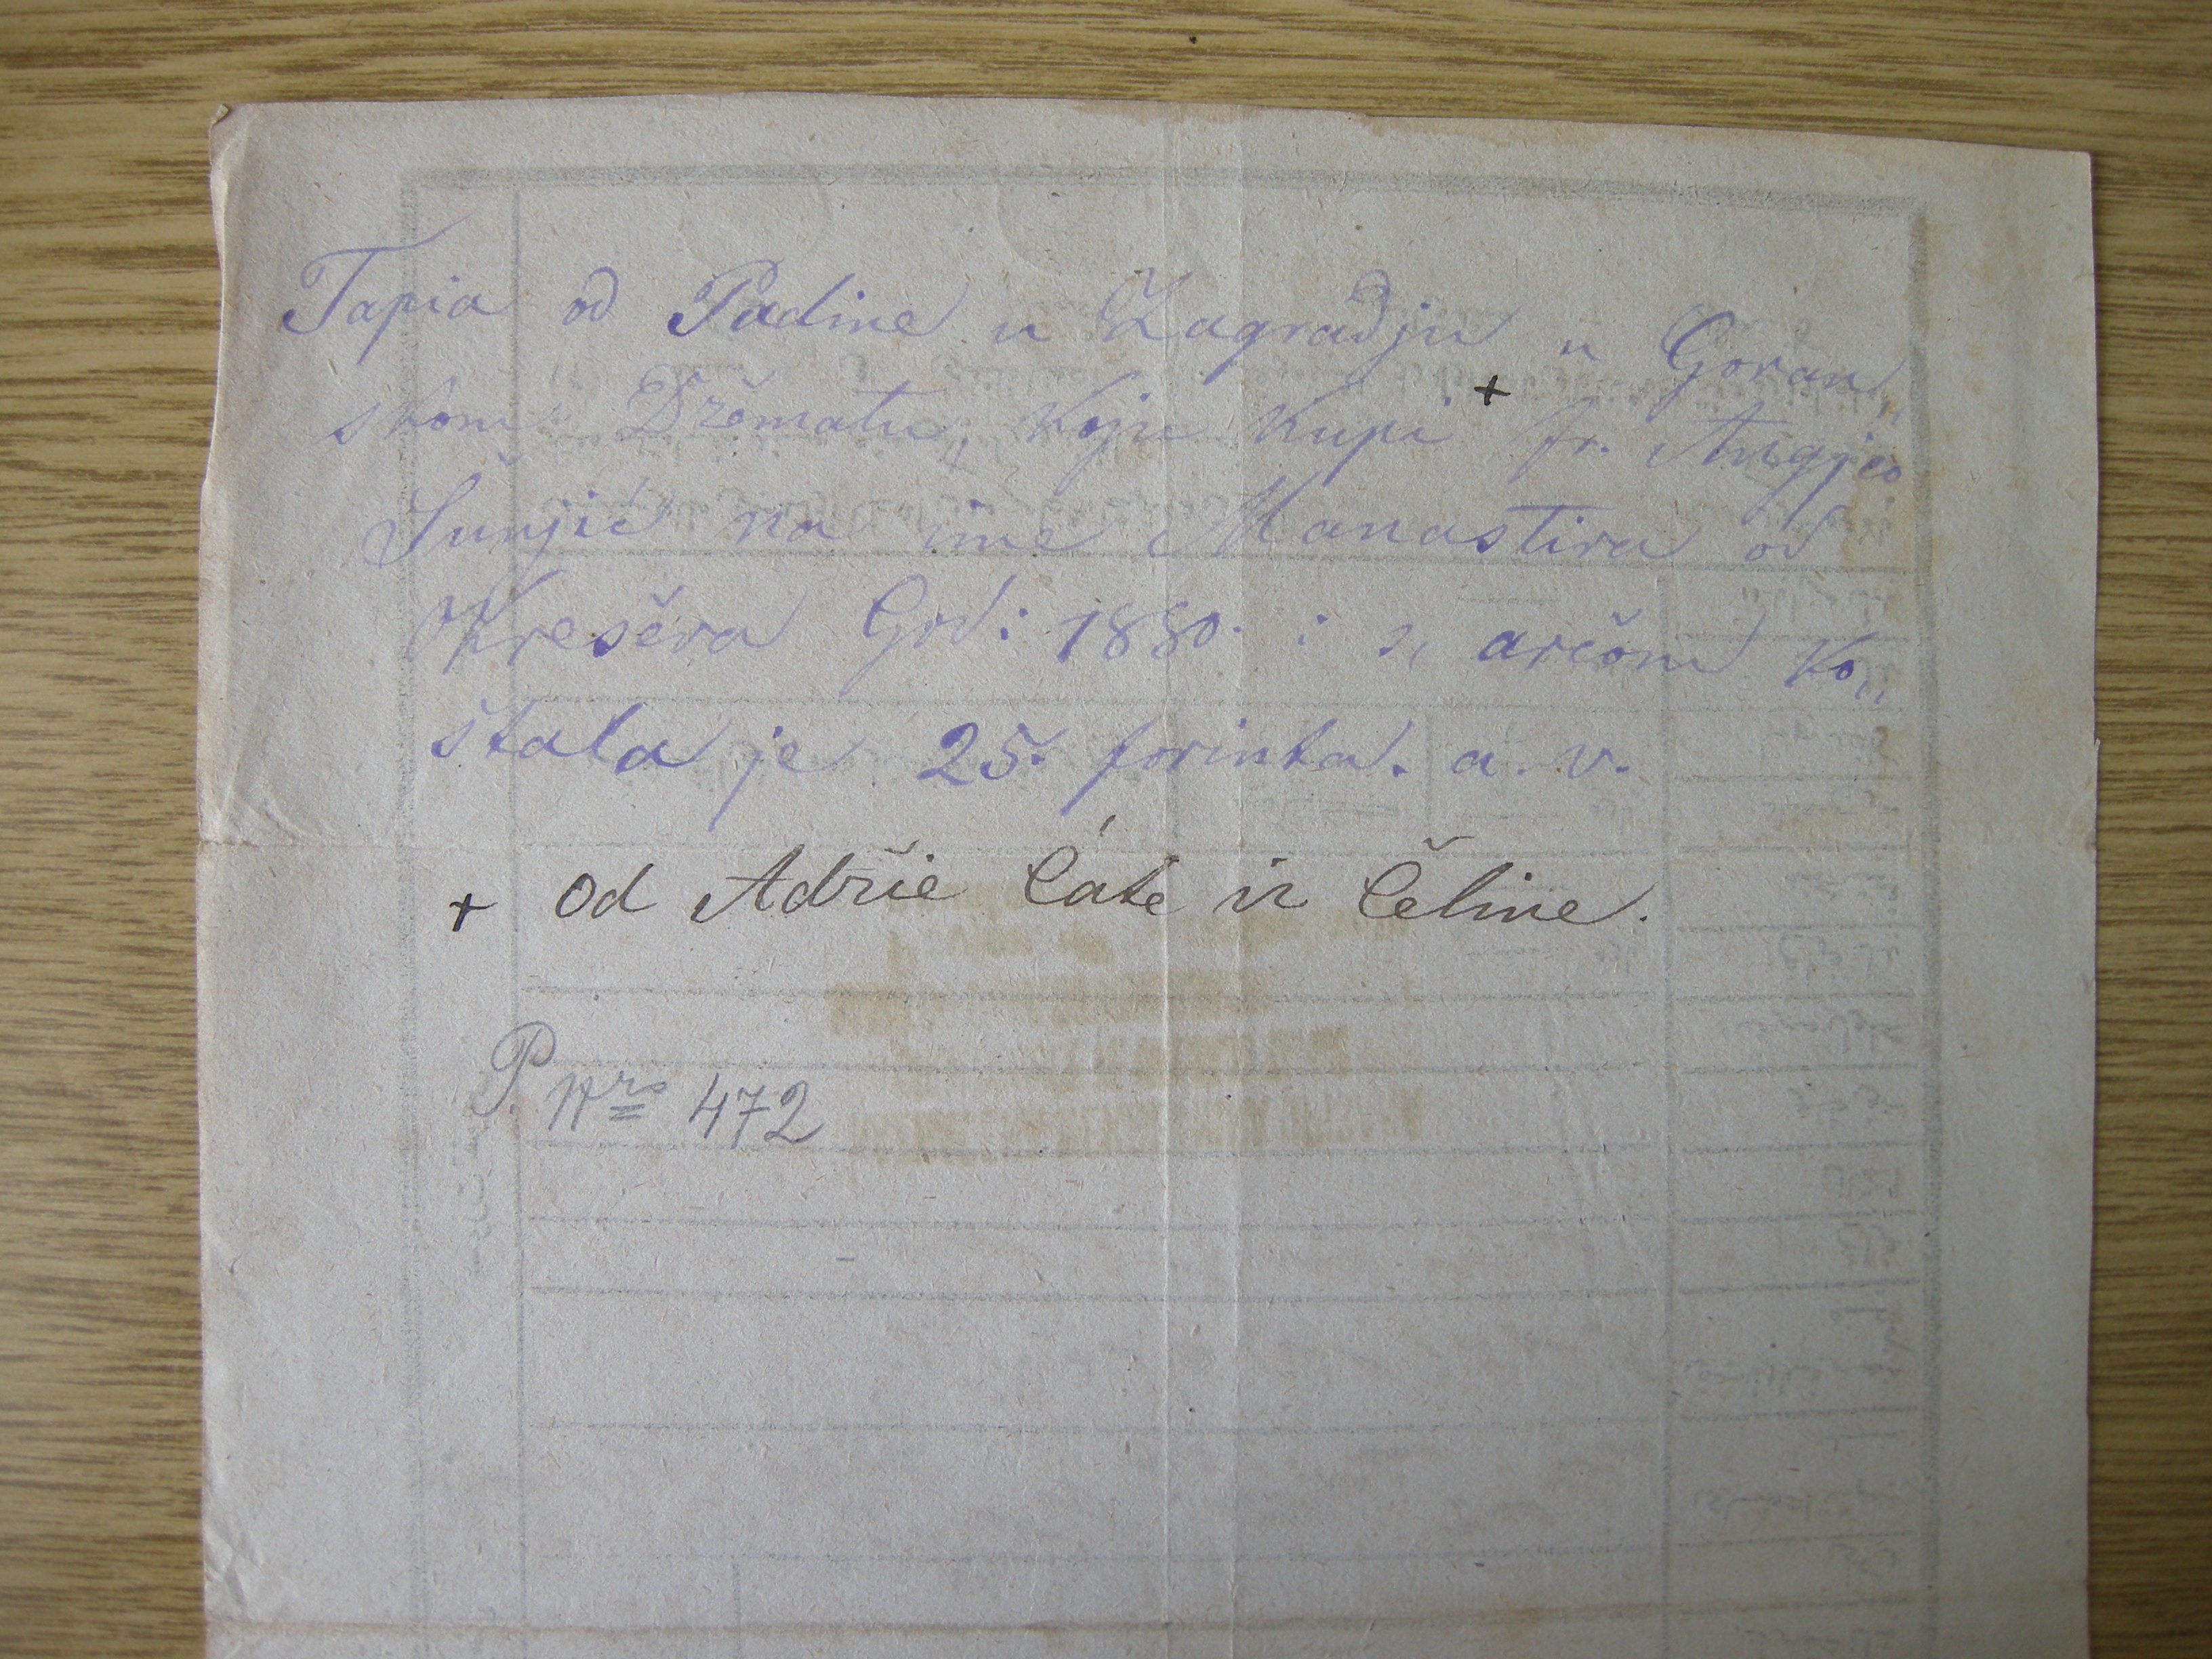 Tapia od Padine u Zagradju u Goran„
skom Džematu, koju kupi + fr. Angjeo
Šunjić na ime Manastira od
Kreševa God: 1880. i s, arčom ko„
štala je 25. forinta. a. v.
+ od Adžie Ćate iz Čeline.
P. Nro 472